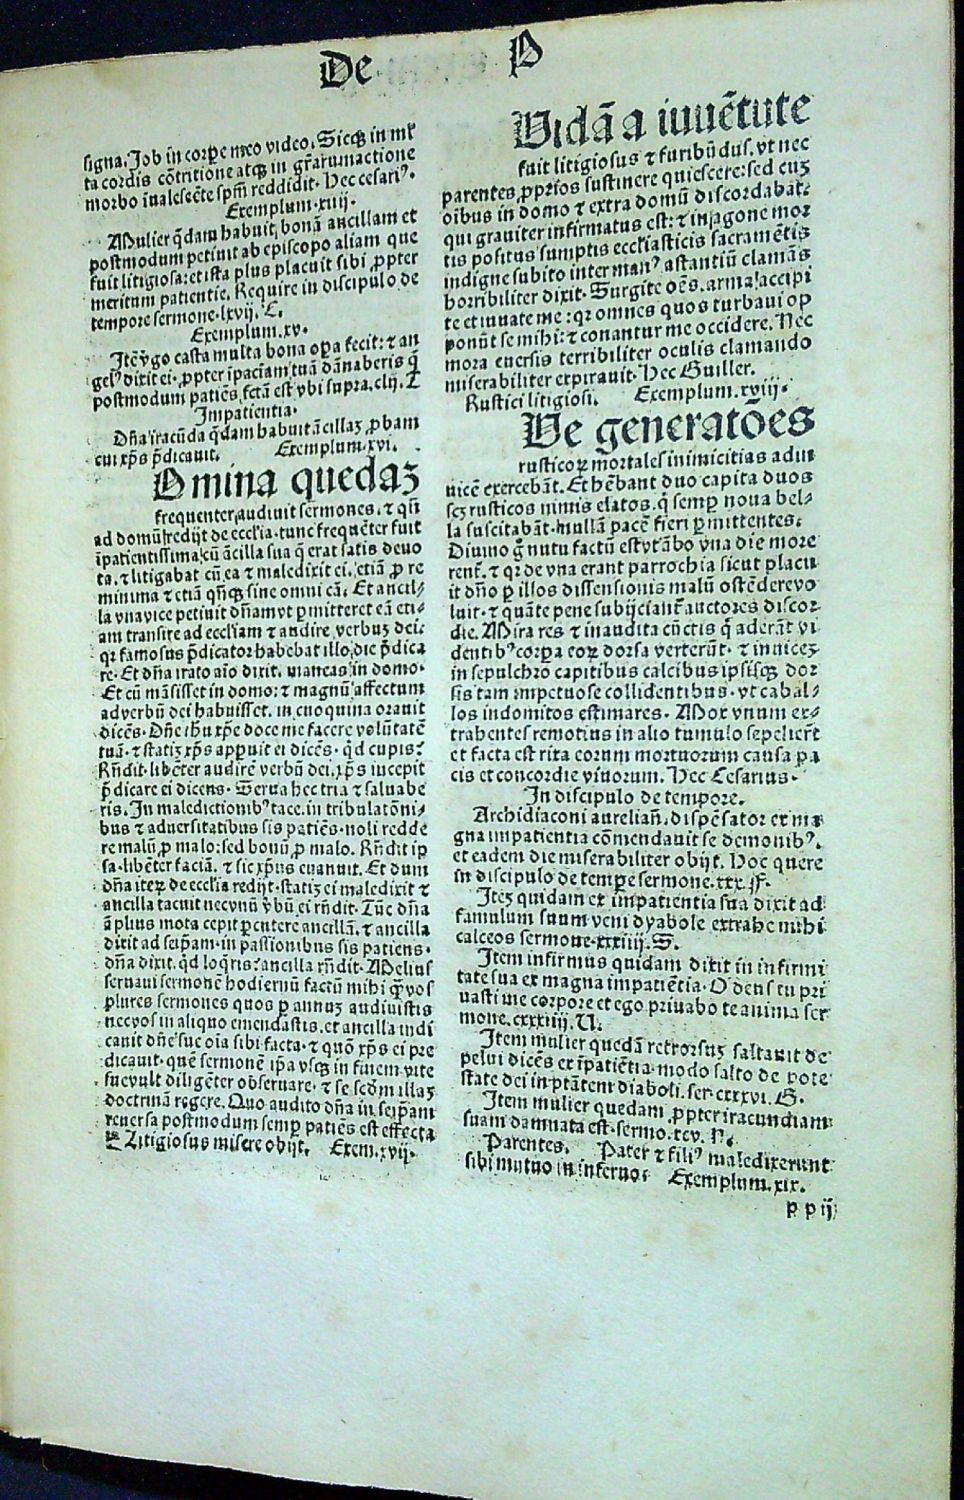 De P
signa. Job in corpore meo video. Sicqꝫ in ml
ta cordis cōtritione atqꝫ in gr̄arumactione
morbo īualescēte spm̄ reddidit. Hec cesariꝰ.
Exemplum. xiiij.
Mulier q̄dam habuit bonā ancillam et
postmodum petiuit ab episcopo aliam que
fuit litigiosa: et ista plus placuit sibi ꝓpter
meritum patientie. Require in discipulo de
tempore sermone. lxvij. E.
Exemplum. xv.
Itē v̓go casta multa bona oꝑa fecit: ⁊ an
gelꝰ dixit ei. ꝓpter īpaciam tuā dānaberis q̄
postmodum patiēs fctā est vbi supra. clij. T
Impatientia.
Dn̄a iracūda q̄dam habuit ācillaꝫ ꝓbam
cui xp̄s p̄dicauit. Exemplum. xvi.
Domina quedaꝫ
frequenter audiuit sermones. ⁊ qn̄
ad domū redijt de ecclīa. tunc frequēter fuit
īpatientissima cū ācilla sua q̄ erat satis deuo
ta. ⁊ litigabat cū ea ⁊ maledixit ei. etiā ꝓ re
minima ⁊ etiā qn̄qꝫ sine omni cā. Et ancil⸗
la vna vice petiuit dn̄am vt ꝑmitteret eā eti⸗
am transire ad eccl̄iam ⁊ audire verbuꝫ dei.
qr famosus p̄dicator habebat illo die p̄dica
re. Et dn̄a irato aīo dixit. maneas in domo.
Et cū māsisset in domo: ⁊ magnū affectum
ad verbū dei habuisset. in cuoquina orauit
dicēs. Dn̄e ihū xp̄e doce me facere volūtatē
tuā. ⁊ statiꝫ xp̄s apꝑuit ei dicēs. qd cupis?
Rn̄dit. libēter audirē verbū dei. xp̄s incepit
p̄dicare ei dicens. Serua hec tria ⁊ saluabe
ris. In maledictionibꝰ tace. in tribulatōni⸗
bus ⁊ aduersitatibus sis patiēs. noli redde
re malū ꝓ malo: sed bonū ꝓ malo. Rn̄dit ip̄
sa. libēter faciā. ⁊ sic xp̄us euanuit. Et dum
dn̄a iteꝝ de ecclīa redijt. statiꝫ ei maledixit ⁊
ancilla tacuit nec vnū v̓bū ei rn̄dit. Tūc dn̄a
ā plius mota cepit ꝑcutere ancillā. ⁊ ancilla
dixit ad seip̄am. in passionibus sis patiens.
dn̄a dixit. qd loq̄ris? ancilla rn̄dit. Melius
seruaui sermonē hodiernū factū mihi q̄ꝫ vos
plures sermones quos ꝑ annuꝫ audiuistis
nec vos in aliquo emendastis. et ancilla indi
cauit dn̄e sue oīa sibi facta. ⁊ quō xp̄s ei pre
dicauit. quē sermonē ip̄a vsqꝫ in finem vite
sue vult diligēter obseruare. ⁊ se scdm illaꝫ
doctrinā regere. Quo audito dn̄a in seip̄am
reuersa postmodum semꝑ patiēs est effecta
Litigiosus misere obijt. Exem. xvij.
Uidā a iuuētute
fuit litigiosus ⁊ furibūdus. vt nec
parentes ꝓprios sustinere quiescere: sed cuꝫ
oībus in domo ⁊ extra domū discordabat.
qui grauiter infirmatus est: ⁊ in agone mor
tis positus sumptis ecclīasticis sacramētis
indigne subito inter manꝰ astantiū clamās
horribiliter dixit. Surgite oēs. arma accipi
te et iuuate me: qr omnes quos turbaui op
ponūt se mihi: ⁊ conantur me occidere. Nec
mora euersis terribiliter oculis clamando
miserabiliter expirauit. Hec Guiller.
Rustici litigiosi. Exemplum. xviij.
De generatōes
rusticoꝝ mortales inimicitias adui
uicē exercebāt. Et hēbant duo capita duos
scꝫ rusticos nimis elatos. q̄ semꝑ noua bel⸗
la suscitabāt. nullā pacē fieri ꝑmittentes.
Diuino g̊ nutu factū est vt ābo vna die more
rent̄. ⁊ qr de vna erant parrochia sicut placu
it dn̄o ꝑ illos dissensionis malū ostēdere vo
luit. ⁊ quāte pene subijciant̄ auctores discor
die. Mira res ⁊ inaudita cūctis q̄ aderāt vi
dentibꝰ corꝑa eoꝝ dorsa verterūt. ⁊ inuiceꝫ
in sepulchro capitibus calcibus ipsisqꝫ dor
sis tam impetuose collidentibus. vt cabal⸗
los indomitos estimares. Mox vnum ex⸗
trahentes remotius in alio tumulo sepelierūt
et facta est rixa eorum mortuorum causa pa
cis et concordie viuorum. Hec Cesarius.
In discipulo de tempore.
Archidiaconi aureliañ. dispēsator ex ma
gna impatientia cōmendauit se demonibꝰ.
et eadem die miserabiliter obijt. Hoc quere
in discipulo de tempore sermone. xxx. F.
Iteꝫ quidam ex impatientia sua dixit ad
famulum suum veni dyabole extrahe mihi
calceos sermone. xxxiiij. S.
Item infirmus quidam dixit in infirmi
tate sua ex magna impatiētia. O deus tu pri
uasti me corpore et ego priuabo te anima ser
mone. cxxxiiij. U.
Item mulier quedam retrorsuꝫ saltauit de
pelui dicēs ex īpatiētia. modo salto de pote
state dei in ptātem diaboli. ser. cxxxvi. G.
Item mulier quedam ꝓpter iracundiam
suam damnata est. sermo. tcv. N.
Parentes. Pater ⁊ filiꝰ maledixerunt
sibi mutuo in inferno. Exemplum. xix.
p p ij